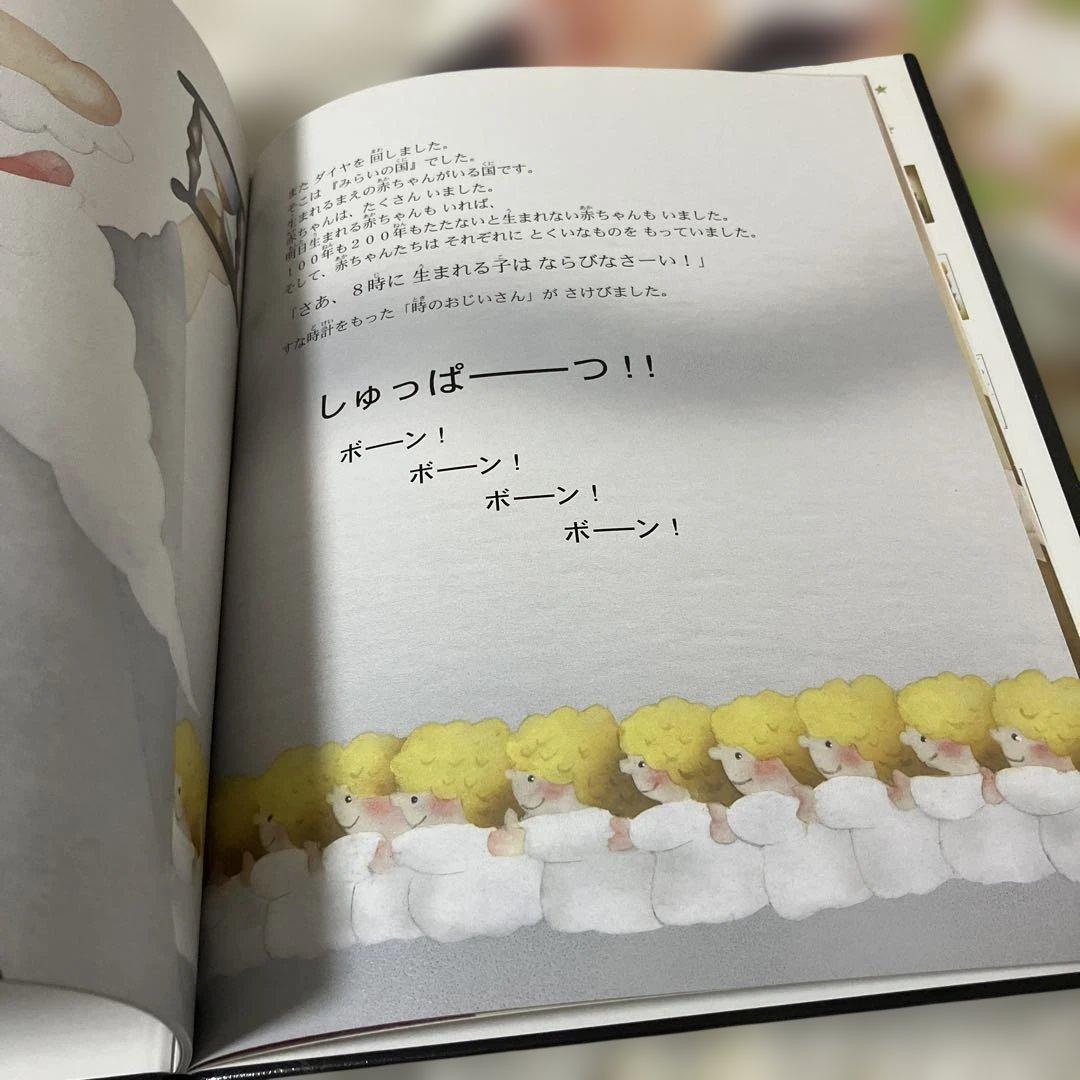 また ダイヤを 回しました。
そこは『みらいの国』でした。
生まれるまえの赤ちゃんがいる国です。
赤ちゃんは、たくさん いました。
明日生まれる赤ちゃんも いれば、
１００年も２００年もたたないと生まれない赤ちゃんも いました。
そして、赤ちゃんたちは それぞれに とくいなものを もっていました。
「さあ、８時に 生まれる子は ならびなさーい！」
すな時計をもった「時のおじいさん」が さけびました。
しゅっぱ――つ！！
ボ―ン！
ボ―ン！
ボ―ン！
ボ―ン！